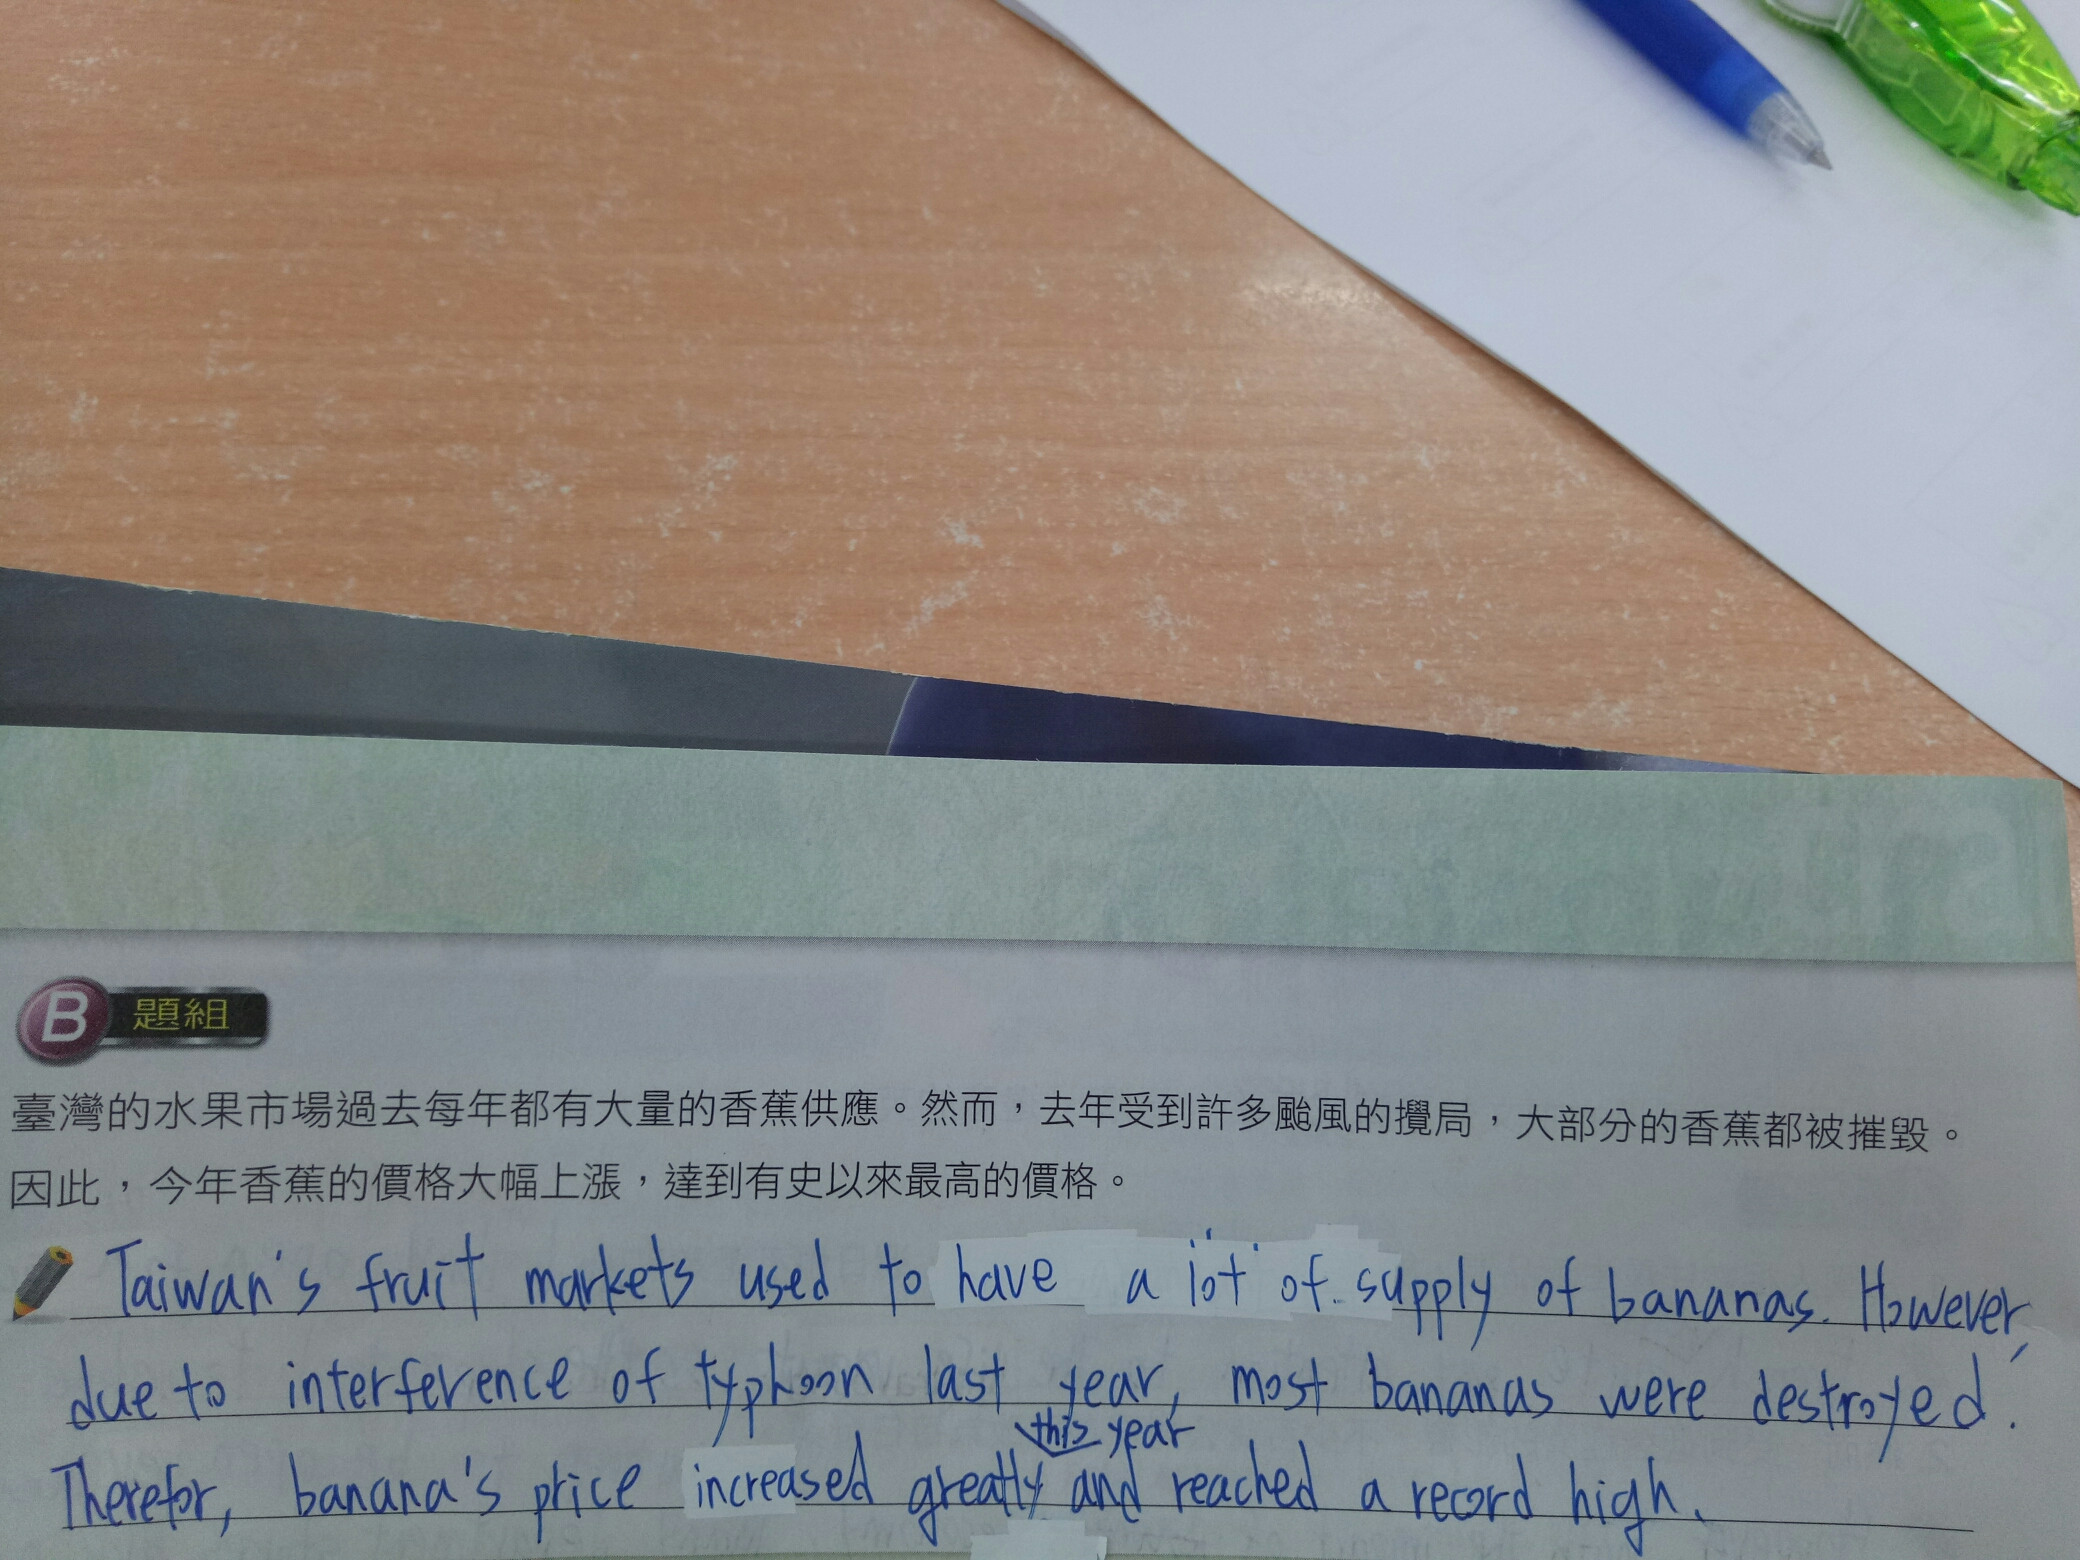 B 題組
臺灣的水果市場過去每年都有大量的香蕉供應。然而，去年受到許多颱風的攪局，大部分的香蕉都被摧毀。
因此，今年香蕉的價格大幅上漲，達到有史以來最高的價格。
Taiwan's fruit markets used to have a lot of supply of bananas. However,
due to interference of typhoon last year, most bananas were destroyed.
this year
Therefor, banana's price increased greatly and reached a record high.